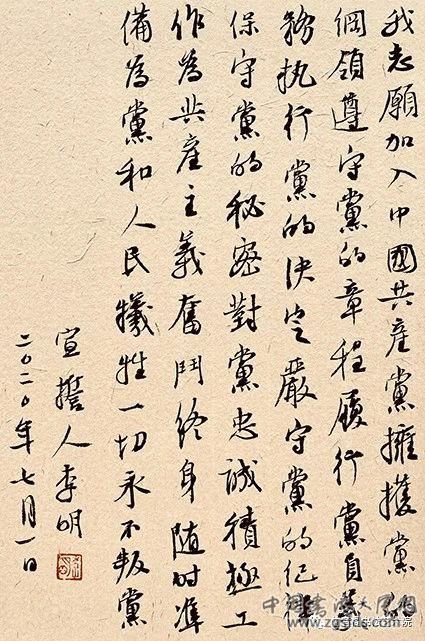 我志願加入中國共產黨擁護黨的
綱領遵守黨的章程履行黨員義
務執行黨的決定嚴守黨的紀律
保守黨的秘密對黨忠誠積極工
作為共產主義奮鬥終身隨時準
備為黨和人民犧牲一切永不叛黨
宣誓人李明
二〇二〇年七月一日